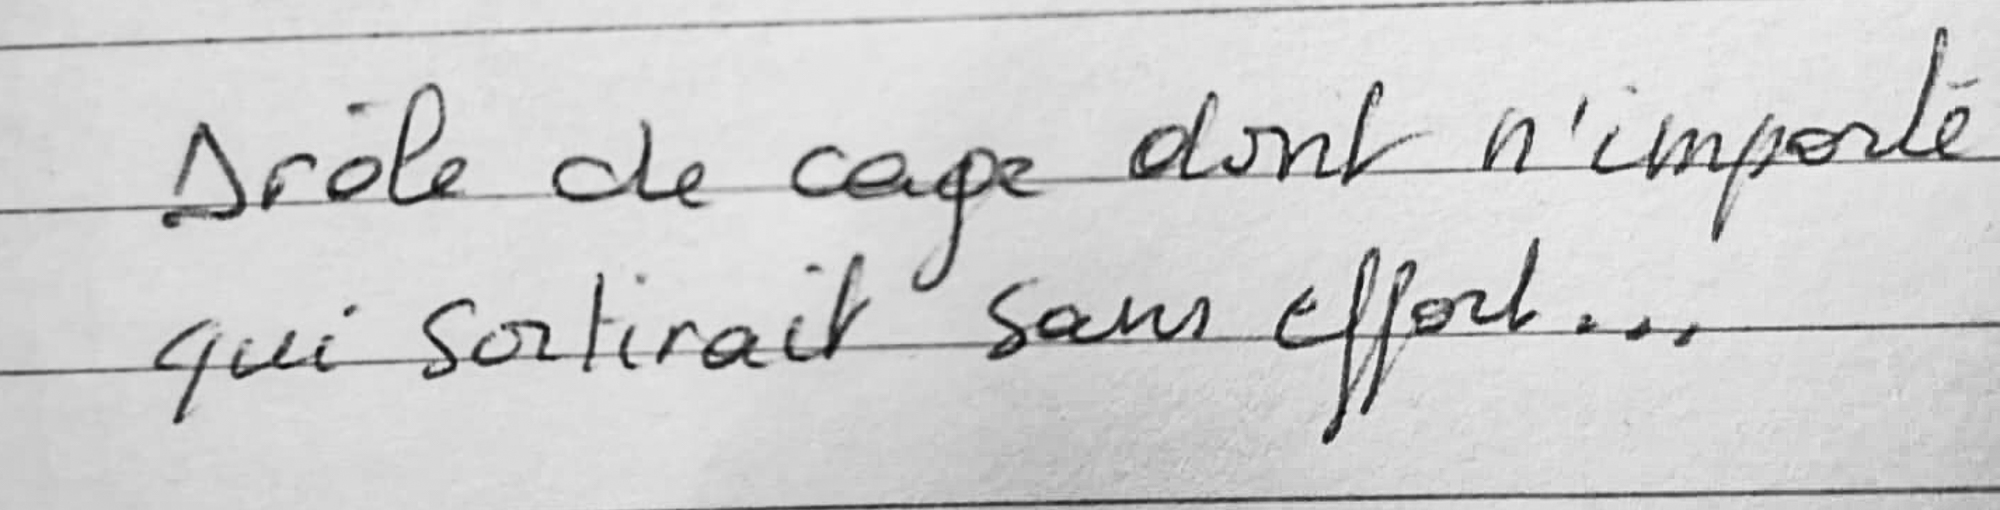 Drôle de cage dont n'importe
qui sortirait sans effort...